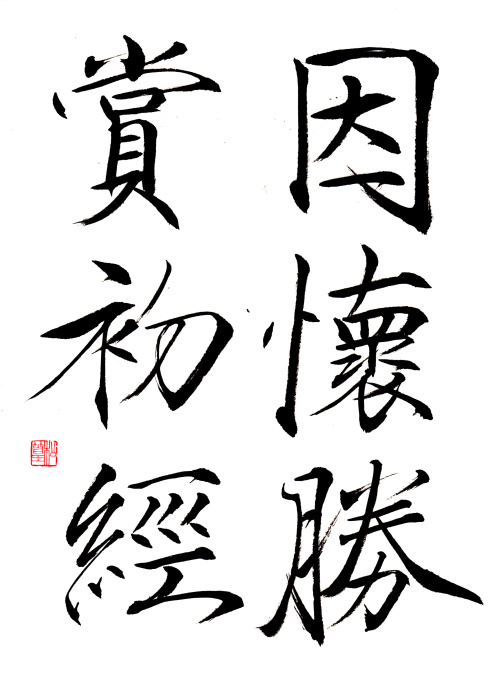 因懷勝
賞初經